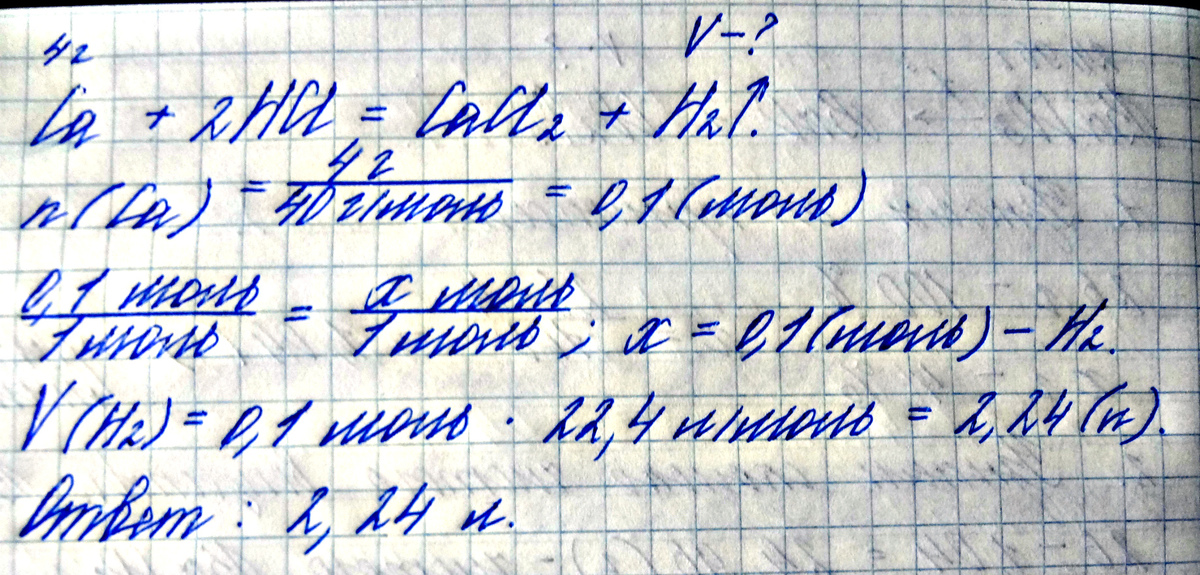 4г V-?
Ca + 2HCl = CaCl₂ + H₂↑.
n(Ca) = 4г / 40 г/моль = 0,1 (моль)
0,1 моль / 1 моль = x моль / 1 моль ; x = 0,1 (моль) - H₂.
V(H₂) = 0,1 моль · 22,4 л/моль = 2,24 (л).
Ответ: 2,24 л.